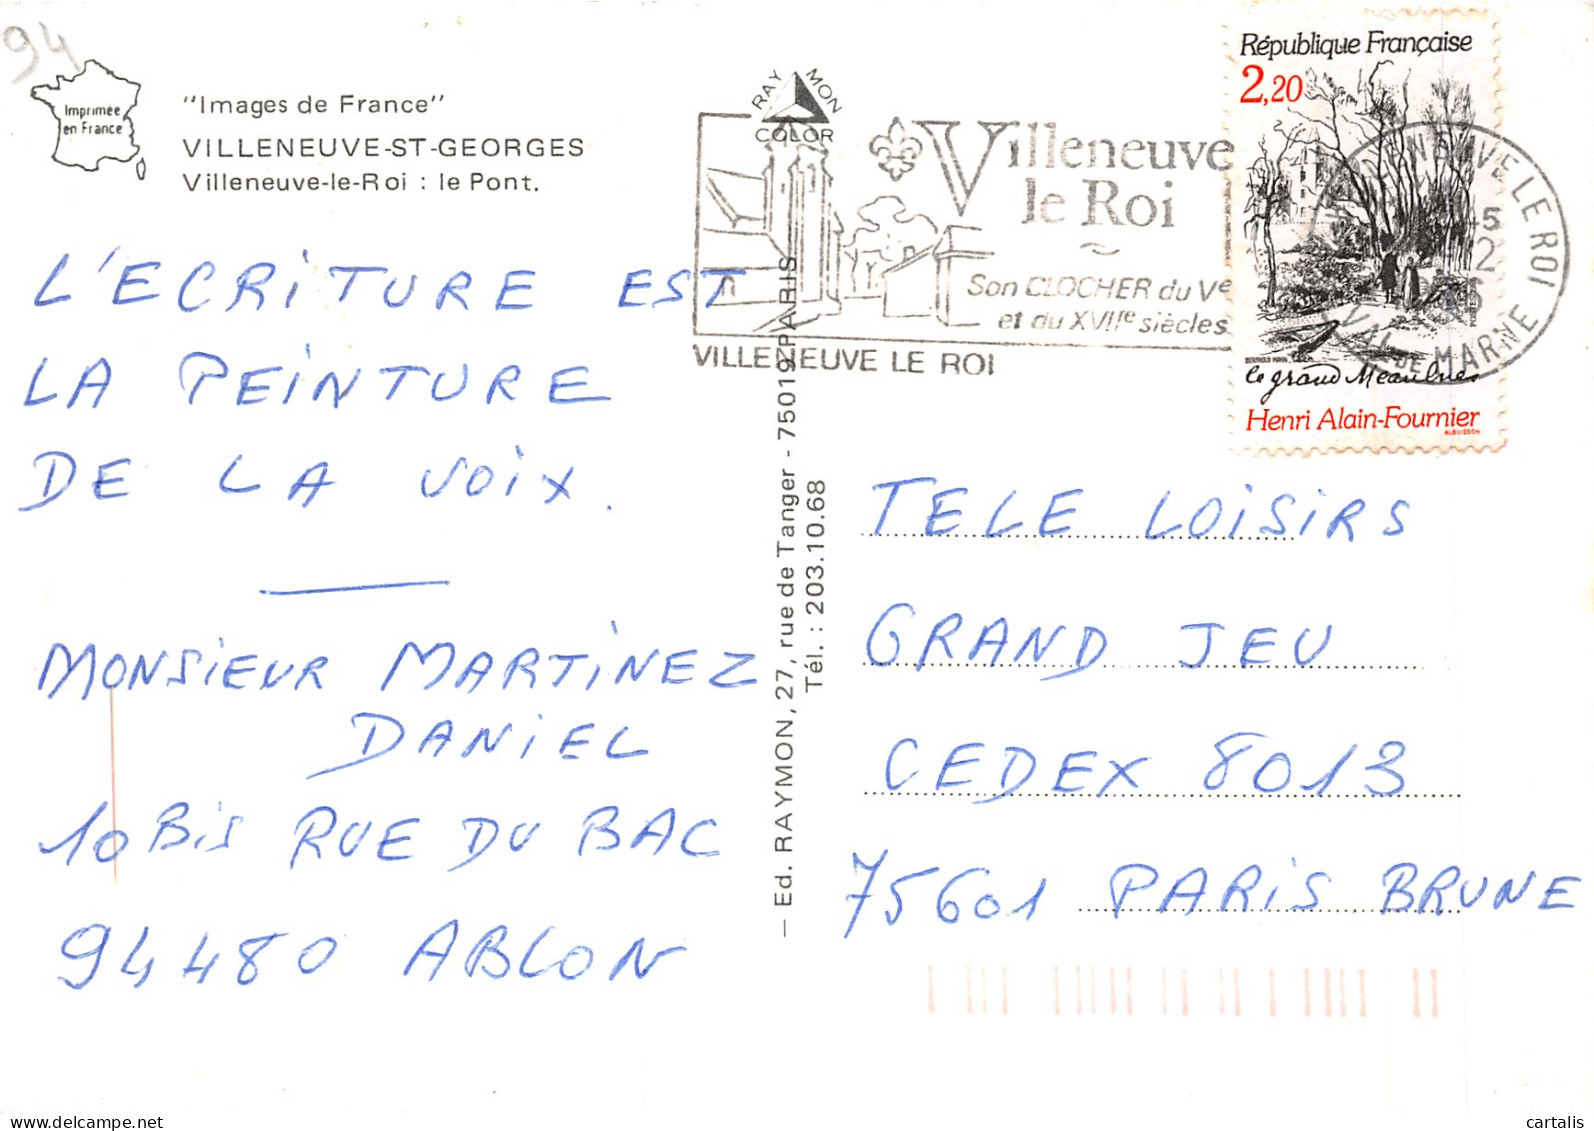 94
Imprimée
en France
"Images de France"
VILLENEUVE-ST-GEORGES
Villeneuve-le-Roi : le Pont.
L'ECRITURE EST
LA PEINTURE
DE LA VOIX.
MONSIEUR MARTINEZ
DANIEL
10 BIS RUE DU BAC
94480 ABLON
RAYMON
COLOR
Villeneuve
le Roi
Son CLOCHER du Ve
et du XVIIe siècles
VILLENEUVE LE ROI
— Ed. RAYMON, 27, rue de Tanger - 75019 PARIS
Tél. : 203.10.68
République Française
2,20
le grand Meaulnes
Henri Alain-Fournier
NEUVE LE ROI
VAL DE MARNE
TELE LOISIRS
GRAND JEU
CEDEX 8013
75601 PARIS BRUNE
delcampe.net
cartalis